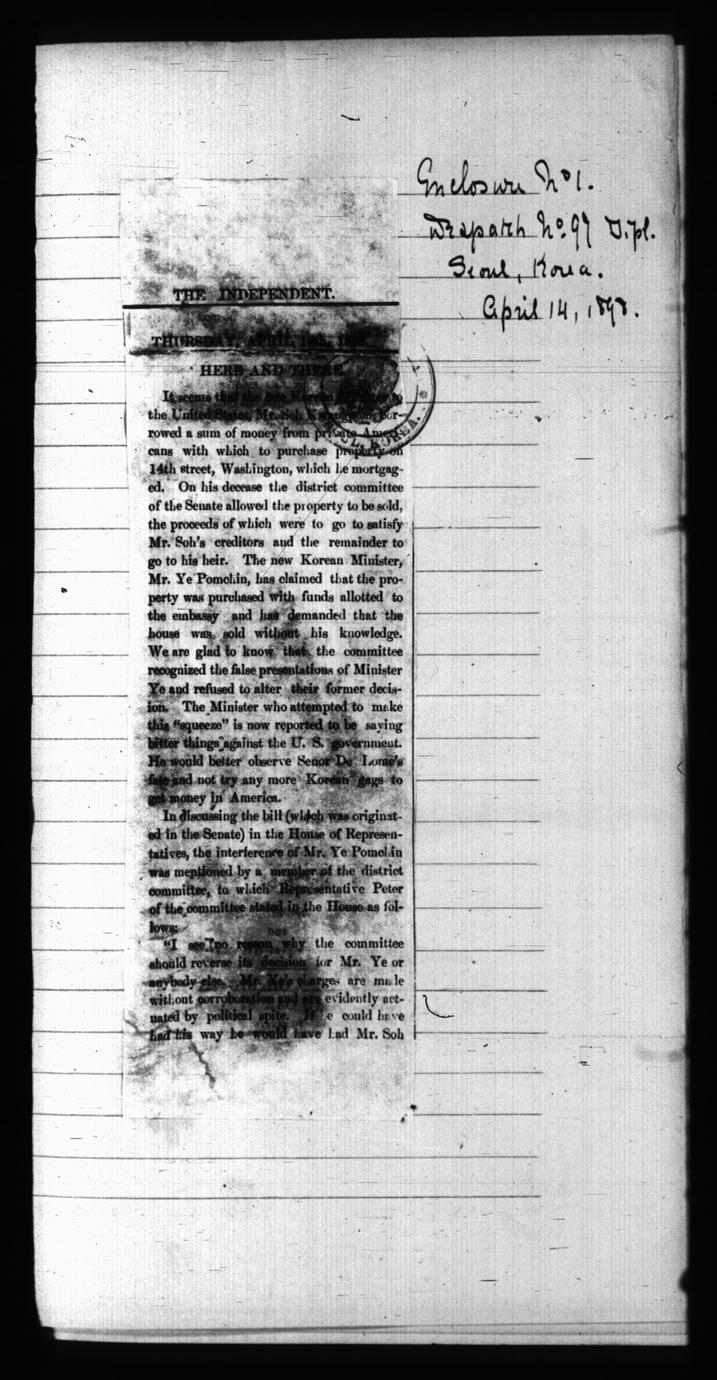 Enclosure No 1.
Despatch No. 97 Dipl.
Seoul, Korea.
April 14, 1898.
THE INDEPENDENT.
THURSDAY, APRIL
HERE AND THERE.
It seems that the late Korean Minister to
the United States, Mr. Soh bor-
rowed a sum of money from private Ameri-
cans with which to purchase property on
14th street, Washington, which he mortgag-
ed. On his decease the district committee
of the Senate allowed the property to be sold,
the proceeds of which were to go to satisfy
Mr. Soh's creditors and the remainder to
go to his heir. The new Korean Minister,
Mr. Ye Pomchin, has claimed that the pro-
perty was purchased with funds allotted to
the embassy and has demanded that the
house was sold without his knowledge.
We are glad to know that the committee
recognized the false presentations of Minister
Ye and refused to alter their former decis-
ion. The Minister who attempted to make
this "squeeze" is now reported to be saying
bitter things against the U. S. government.
He would better observe Senor De Lome's
fate and not try any more Korean gags to
get money in America.
In discussing the bill (which was originat-
ed in the Senate) in the House of Represen-
tatives, the interference of Mr. Ye Pomchin
was mentioned by a member of the district
committee, to which Representative Peter
of the committee stated in the House as fol-
lows:
"I see no reason why the committee
should reverse its decision for Mr. Ye or
anybody else. Mr. Ye's charges are made
without corroboration and are evidently act-
uated by political spite. If he could have
had his way he would have had Mr. Soh
KOREA.